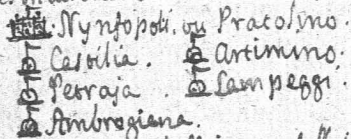 Nynfopoli. ou Pratolino.
Castilia. Artimino.
Petraja. Lampeggi.
Ambrogiana.